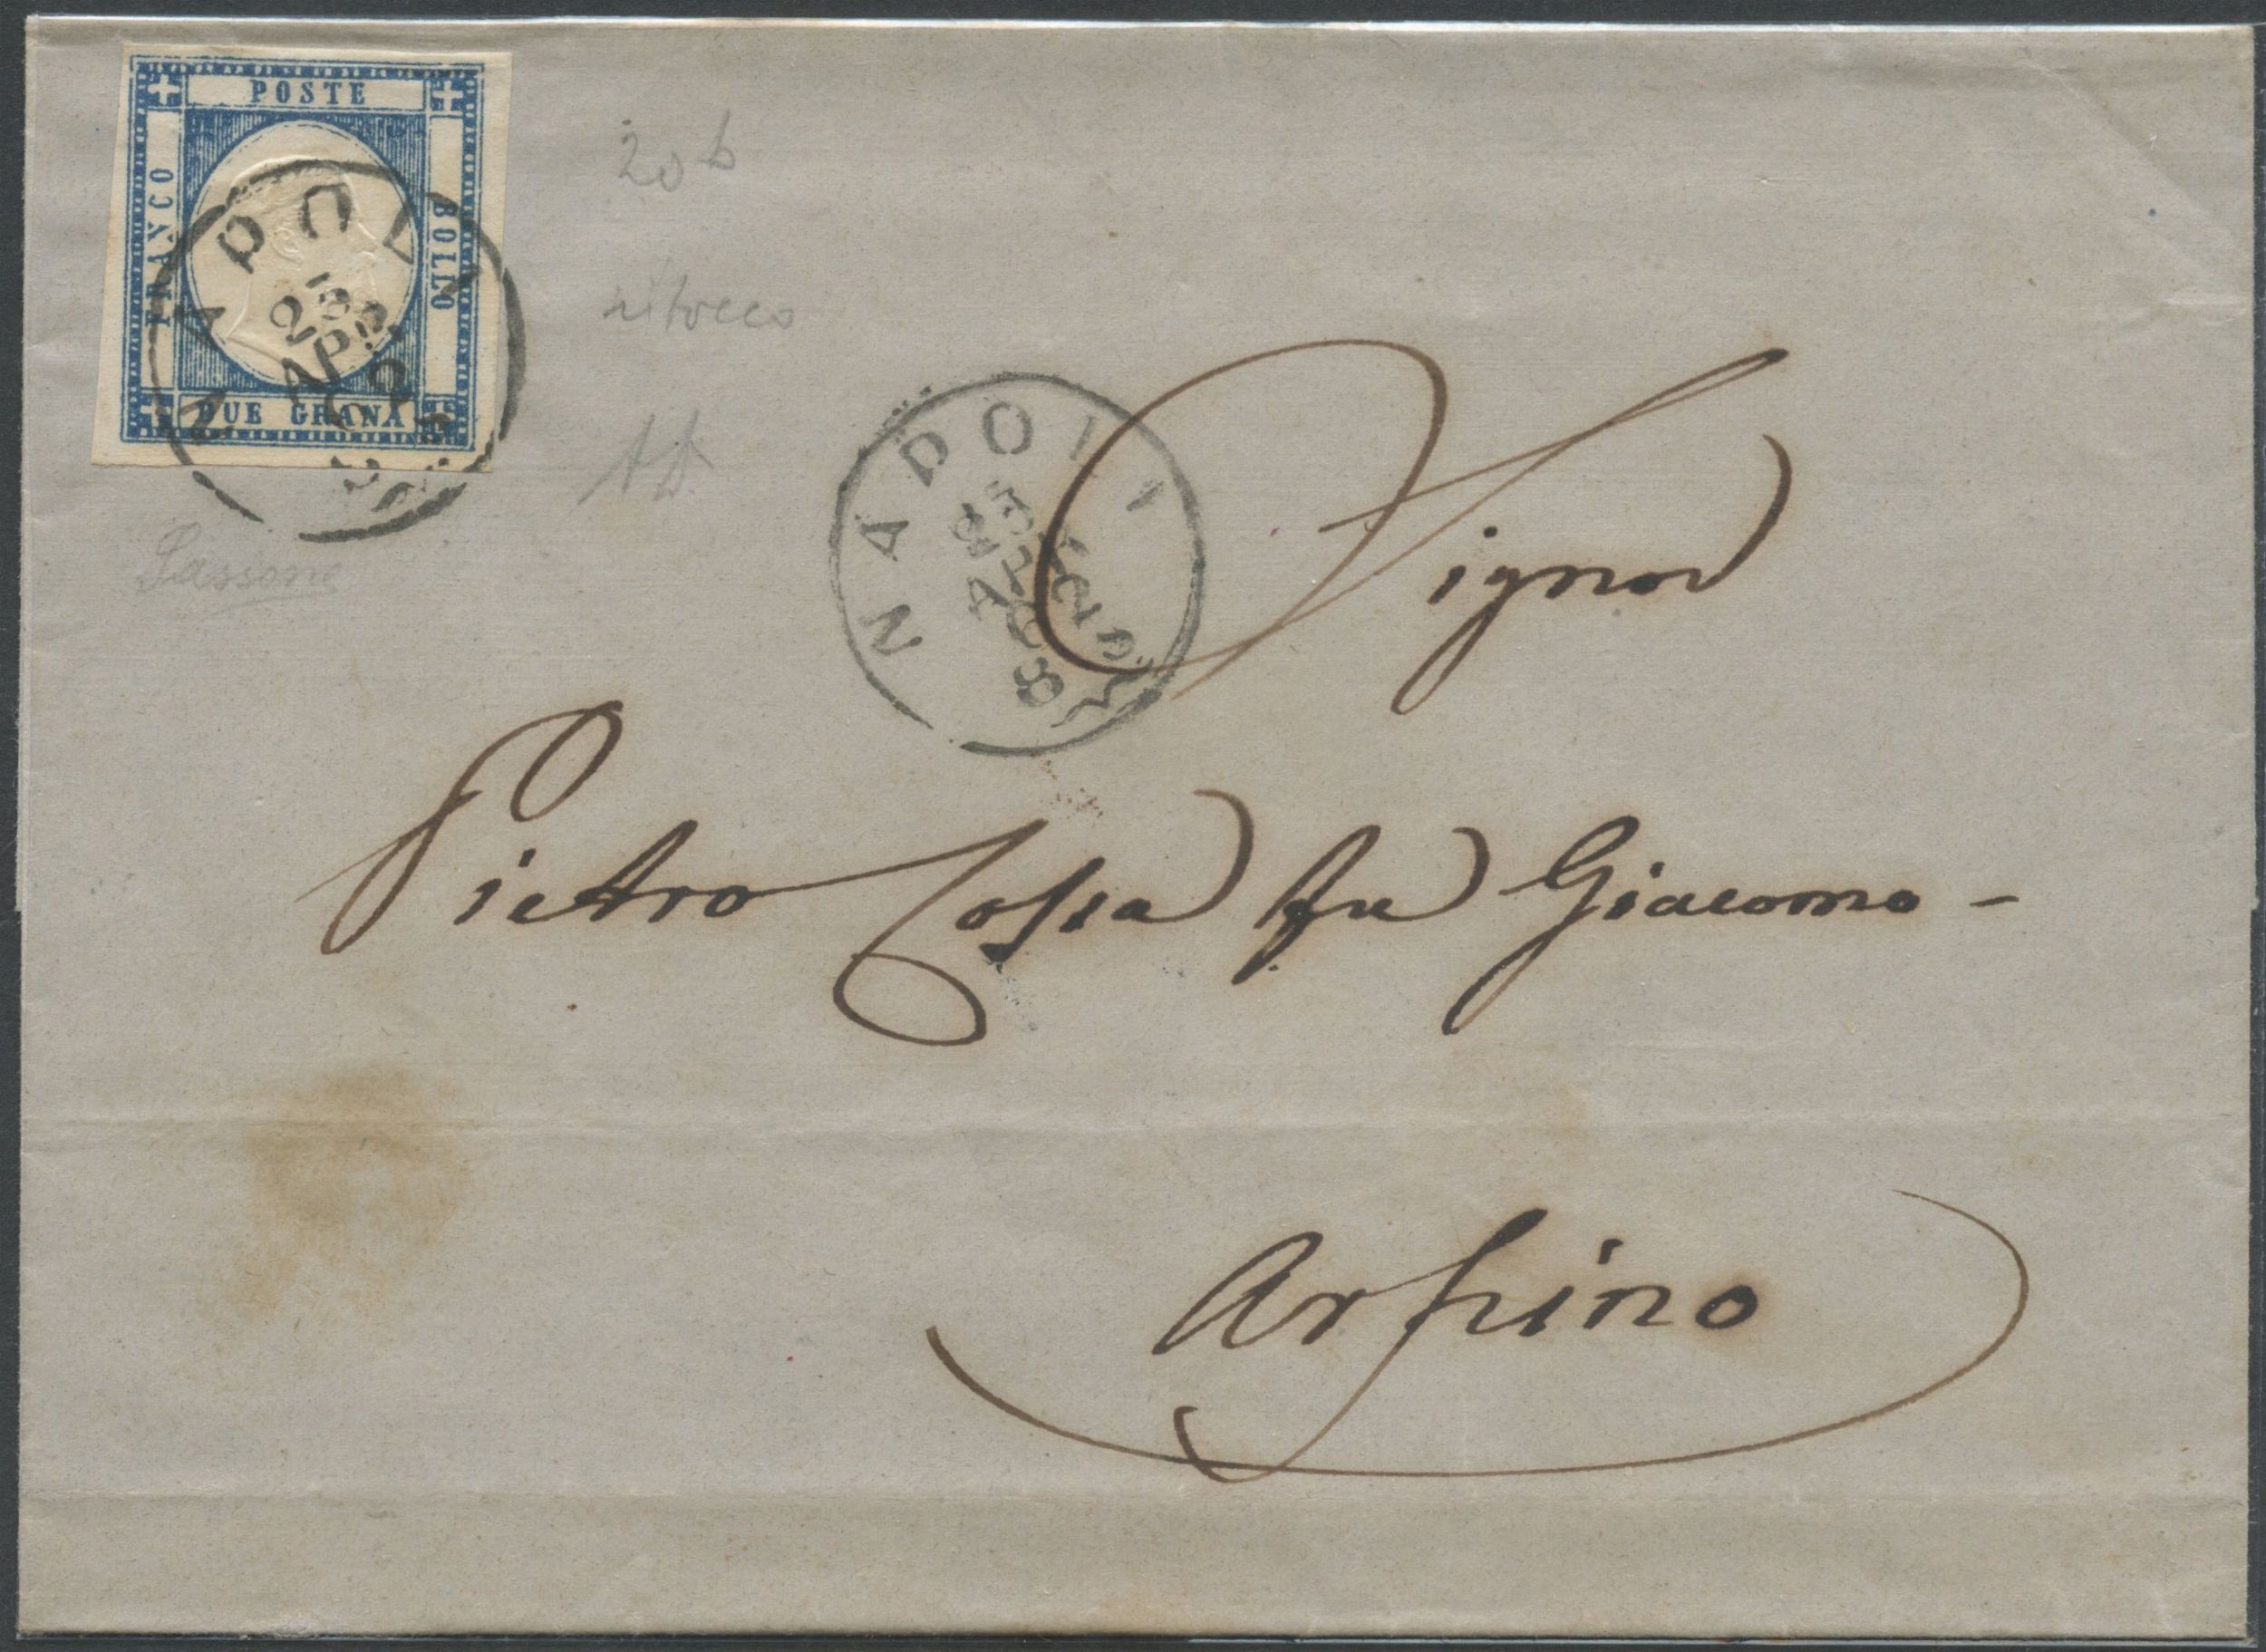 POSTE
FRANCO
BOLLO
DUE GRANA
NAPOLI
25
APR
20 b
ritocco
Sassone
NAPOLI
25
APR
Signor
Pietro Cossa fu Giacomo -
Arpino